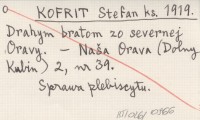 KOFRIT Stefan ks. 1919.
Drahym bratom zo severnej
Oravy. – Naša Orava (Dolny
Kubin) 2, nr 39.
Sprawa plebiscytu.